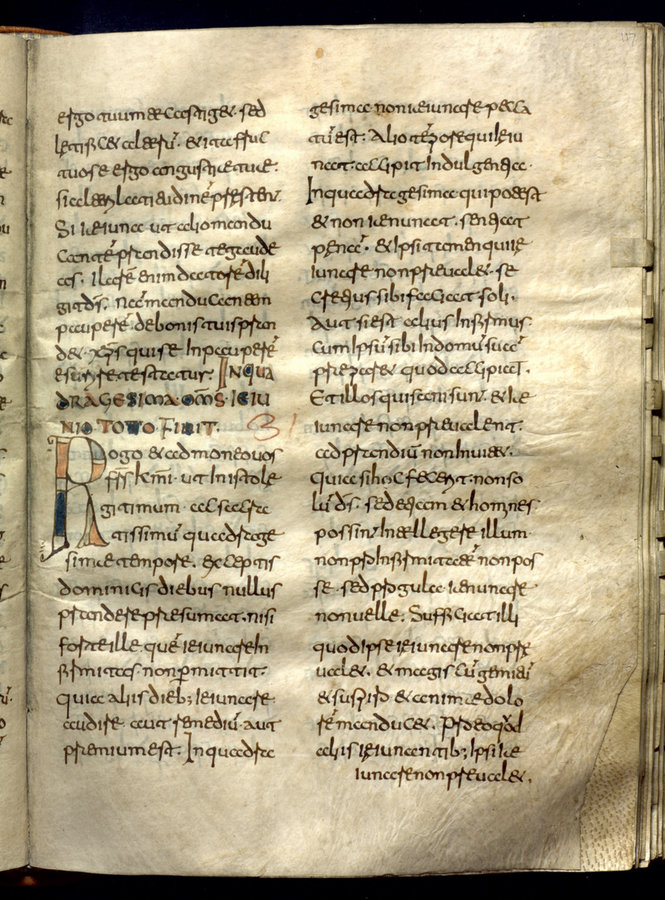 ergo tuum te castiget. sed
letific& & alterū. & ita
tuose ergo angustie tue.
si alteri latitudinē presten&.
Si ieiuna ut alio mandu
cantē prandisse te gaude
as. ilarē enim datorē dili
git ds̄. nā manducanten
pauperē. de bonis tuis pran
d&. xp̄s qui se in pauperē
esurire testatur. IN QUA
DRAGESIMA. OM̄S. IEIU
NIO. TOTO. FINIT. 31
Rogo & admoneo uos
frs̄ kmi. ut in isto le
gitimum ac sacra
tissimū quadrage
sime tempore. exceptis
dominicis diebus nullus
prandere presumat. nisi
forte ille quē ieiunare in
firmitas non permittit:
quia aliis dieb; ieiunare
audire. aut remediū. aut
premium est. In quadra
gesima non ieiunare pecca
tū est: Alio tēpore qui ieiu
nat: accipit indulgentia.
In quadragesima qui potest
& non ieiunat. sentiat
penā. & ipsi tamen qui ie
iunare non preual&. se
cretius sibi faciat soli.
Aut si est alius infirmus.
cum ipsū sibi in domū suā
preparet quod accipiet.
Et illos qui sani sunt. & ie
iunare non preualent.
ad prandiū non inuit&.
quia si hoc fecerit. non so
lū ds̄. sed etiam & homines
possint intellegere illum
non pro infirmitate non pos
se. sed pro gula ieiunare
non uelle. Sufficiat illi
quod ipse ieiunare non pre
ual&. & magis cū gemitu
& suspirio & anime dolo
rē manduc&. Pro eo quod
aliis ieiunantib; ipsi ie
iunare non preual&.